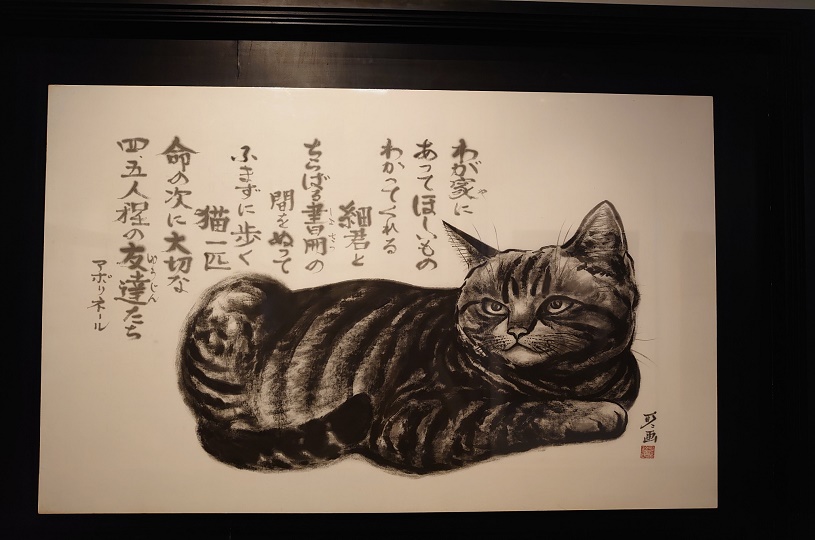 わが家に
あってほしいもの
わかってくれる
細君と
ちらばる書冊の
間をぬって
ふまずに歩く
猫一匹
命の次に大切な
四、五人程の友達たち
アポリネール